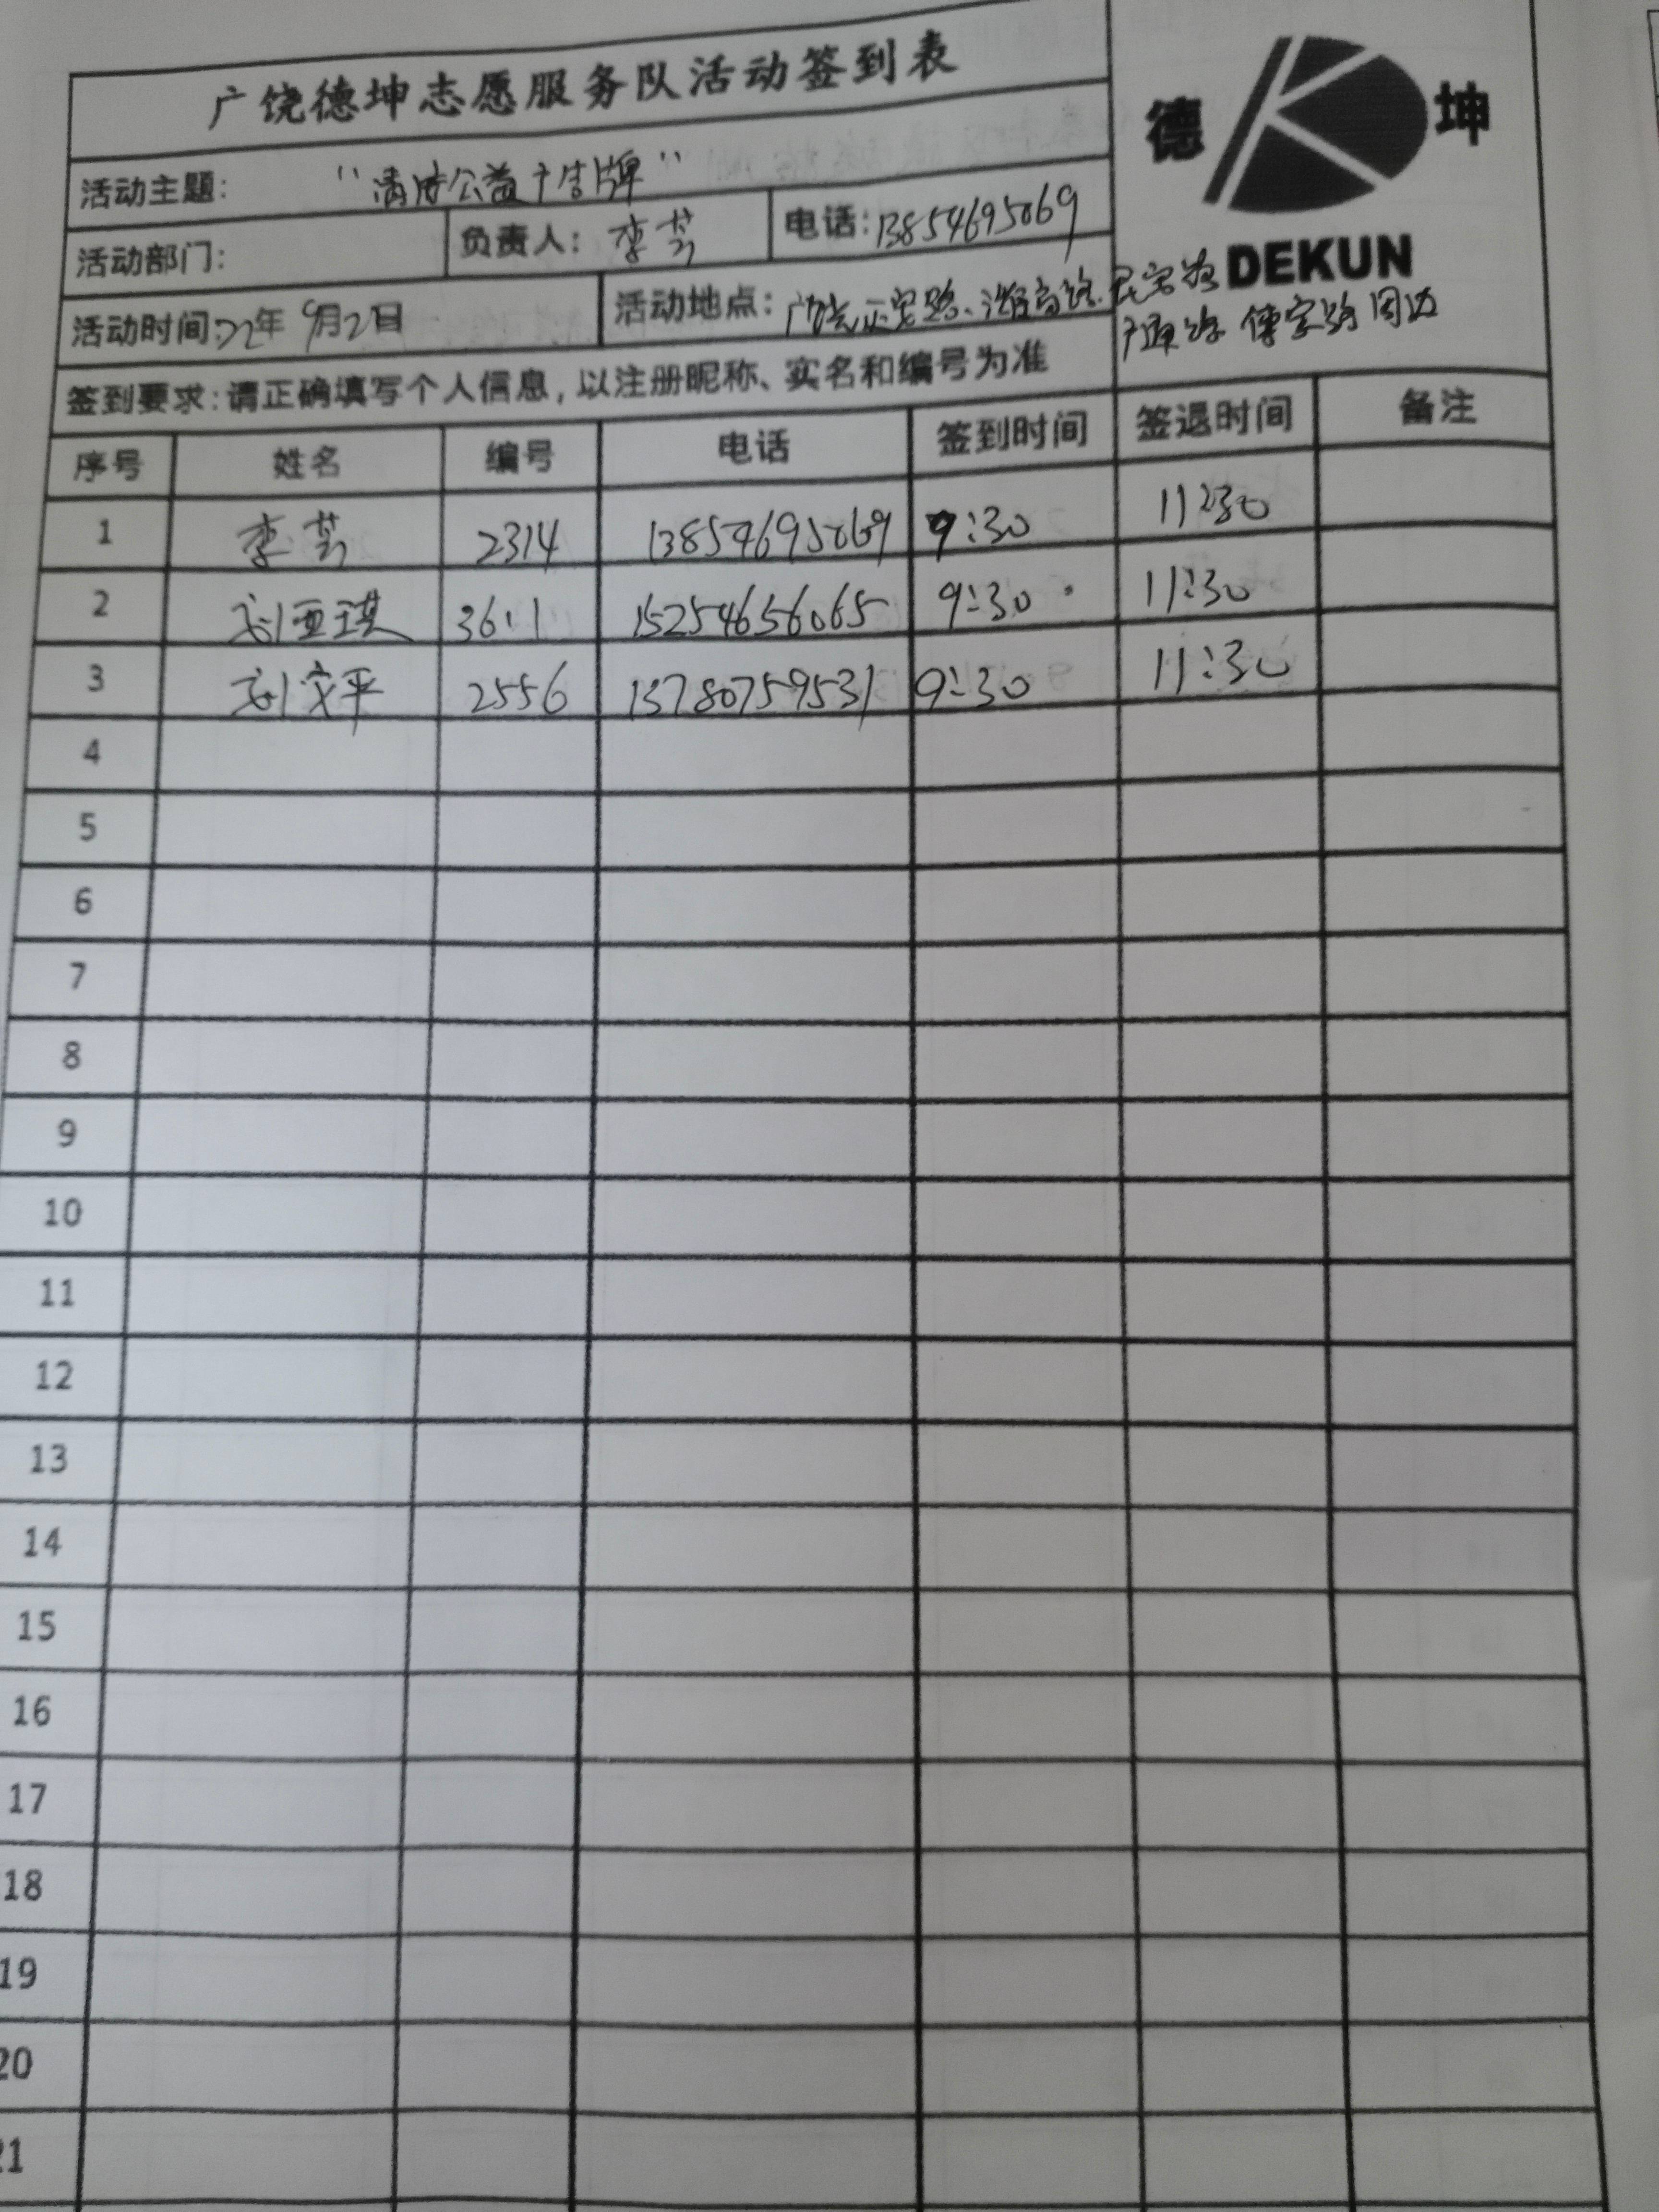 广饶德坤志愿服务队活动签到表
德 坤
DEKUN
活动主题: “清洁公益广告牌”
活动部门: 负责人: 李芸 电话: 13854695069
活动时间: 22年9月2日 活动地点: 广饶正安路、潍高路、
广通路 傅家路周边
签到要求: 请正确填写个人信息, 以注册昵称、实名和编号为准
序号 姓名 编号 电话 签到时间 签退时间 备注
1 李芸 2314 13854695069 9:30 11:30
2 刘亚琪 3611 15254656065 9:30 11:30
3 刘文平 2556 13780759531 9:30 11:30
4
5
6
7
8
9
10
11
12
13
14
15
16
17
18
19
20
21